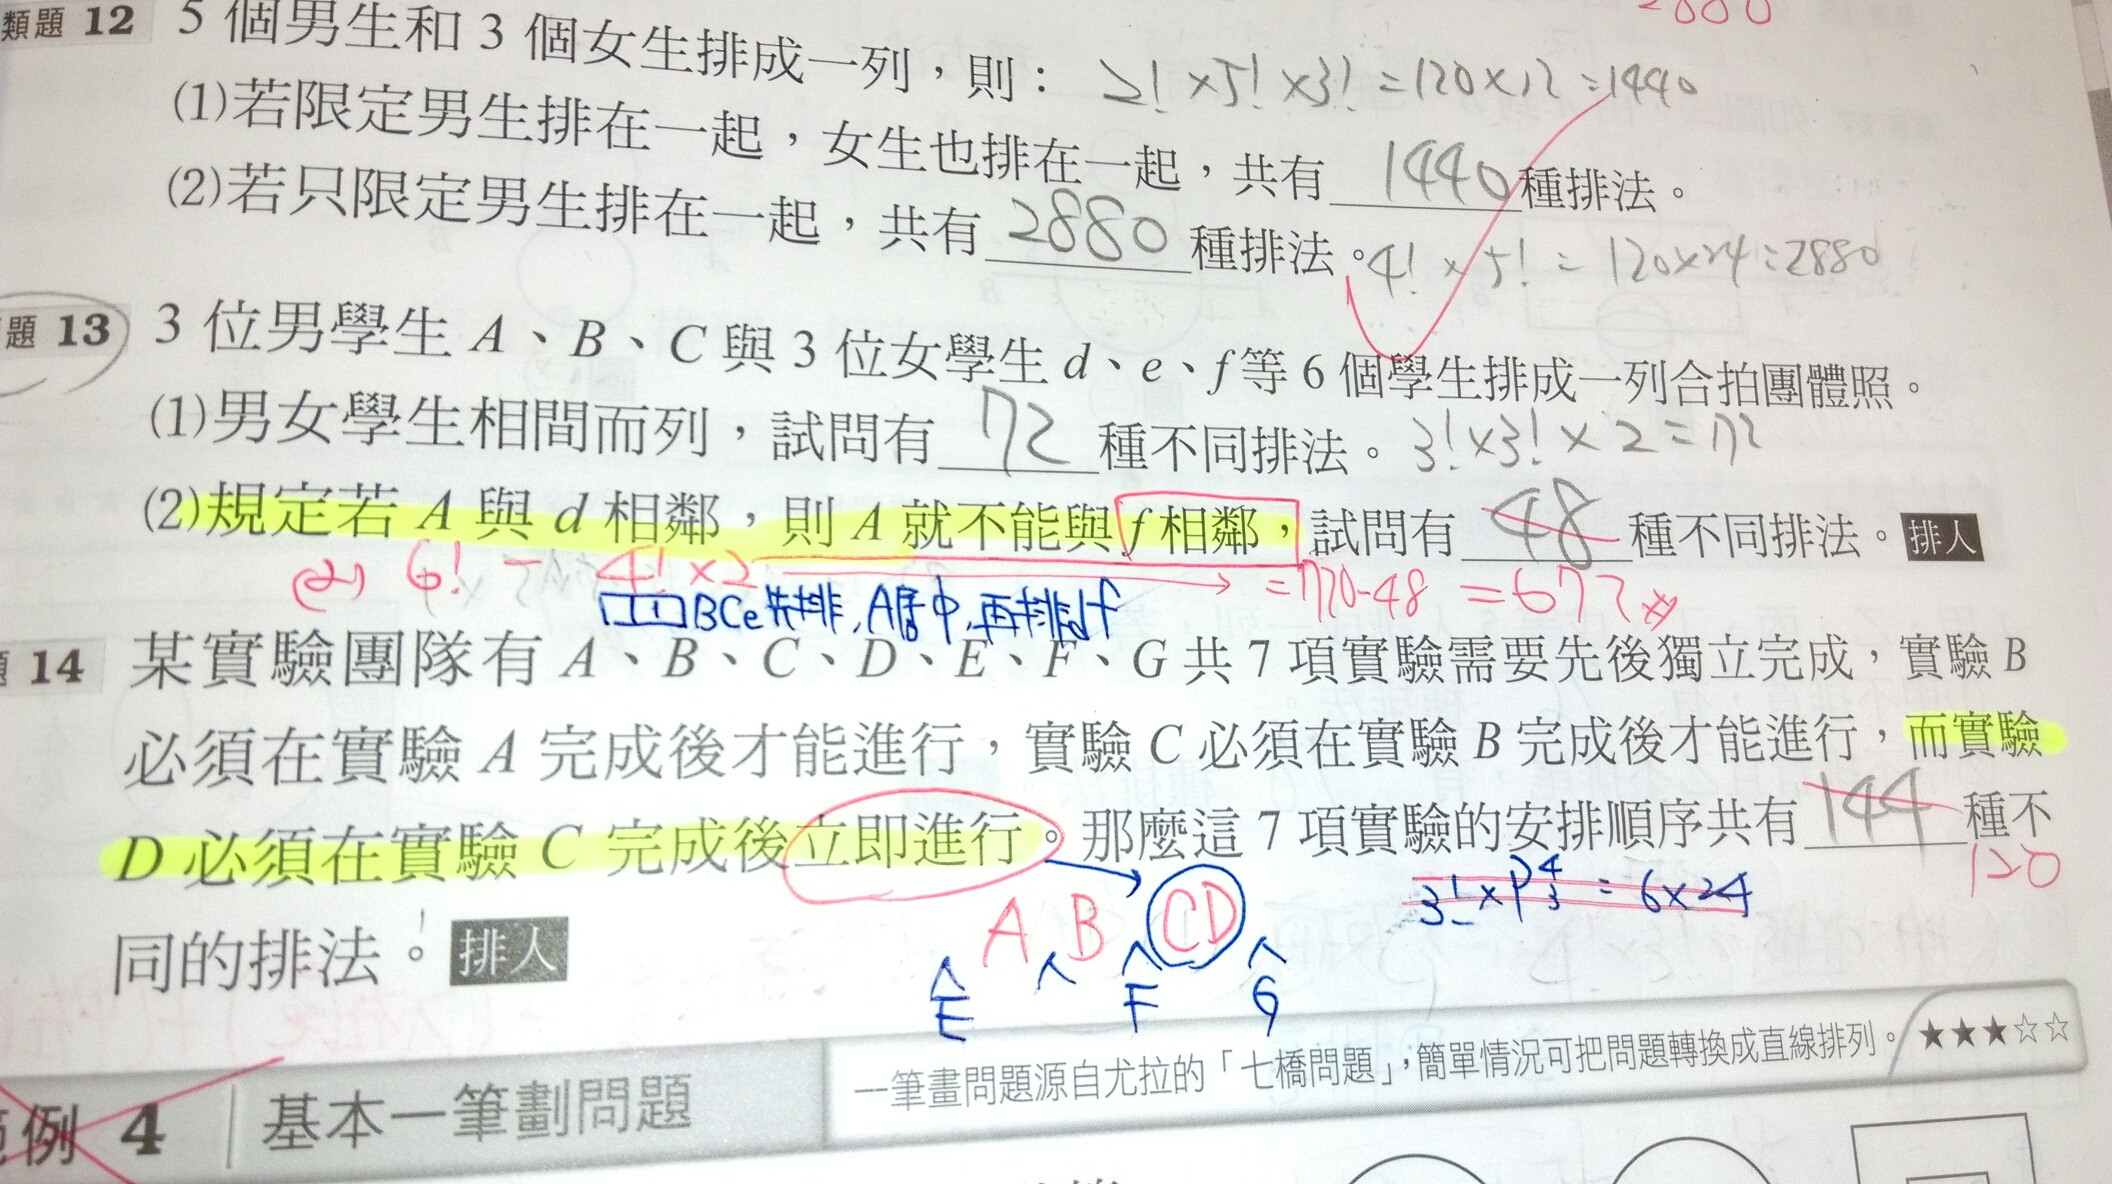 類題 12 5 個男生和 3 個女生排成一列，則： 2! × 5! × 3! = 120 × 12 = 1440
(1)若限定男生排在一起，女生也排在一起，共有 1440 種排法。
(2)若只限定男生排在一起，共有 2880 種排法。 4! × 5! = 120×24=2880
題 13 3 位男學生 A、B、C 與 3 位女學生 d、e、f 等 6 個學生排成一列合拍團體照。
(1)男女學生相間而列，試問有 72 種不同排法。 3! × 3! × 2 = 72
(2)規定若 A 與 d 相鄰，則 A 就不能與 f 相鄰，試問有 48 種不同排法。 排人
(2) 6! - 4! × 2 = 720-48 = 672
BCe先排，A居中，再排df
題 14 某實驗團隊有 A、B、C、D、E、F、G 共 7 項實驗需要先後獨立完成，實驗 B
必須在實驗 A 完成後才能進行，實驗 C 必須在實驗 B 完成後才能進行，而實驗
D 必須在實驗 C 完成後立即進行。那麼這 7 項實驗的安排順序共有 144 種不
120
3! × P 4 3 = 6×24
同的排法。 排人
A B CD
E F G
範例 4 基本一筆劃問題
一筆畫問題源自尤拉的「七橋問題」，簡單情況可把問題轉換成直線排列。 ★★★☆☆